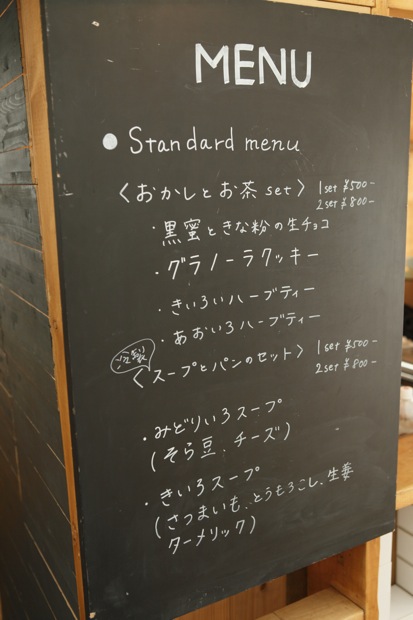 MENU
● Standard menu
〈おかしとお茶 set〉 1set ¥500-
2set ¥800-
・黒蜜ときな粉の生チョコ
・グラノーラクッキー
・きいろいハーブティー
・あおいろハーブティー
〈スープとパンのセット〉 1set ¥500-
2set ¥800-
・みどりいろスープ
(そら豆、チーズ)
・きいろスープ
(さつまいも、とうもろこし、生姜
ターメリック)